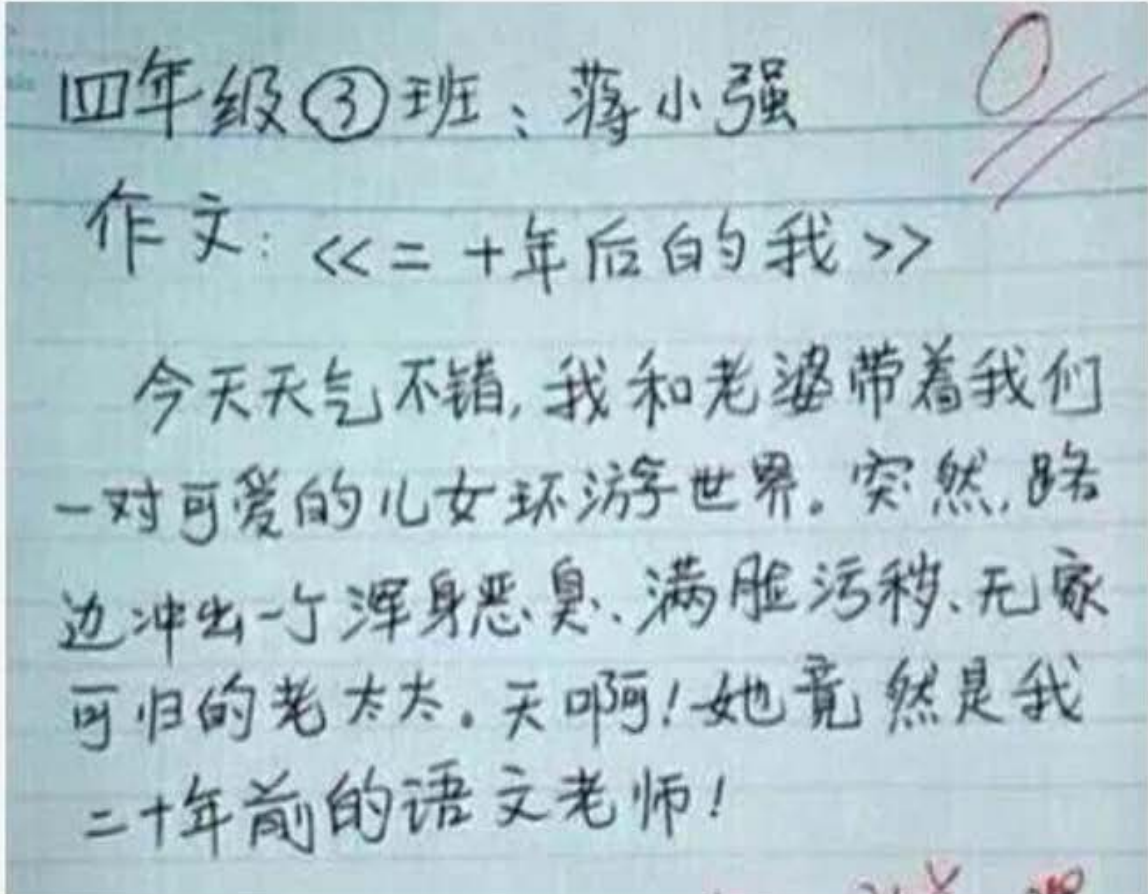 四年级③班：蒋小强
0
作文：《二十年后的我》
今天天气不错，我和老婆带着我们
一对可爱的儿女环游世界。突然，路
边冲出一个浑身恶臭、满脸污秽、无家
可归的老太太。天啊！她竟然是我
二十年前的语文老师！